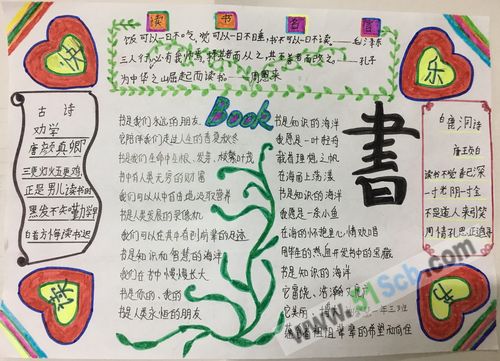 读书名言
饭可以一日不吃,觉可以一日不睡,书不可以一日不读——毛泽东
三人行,必有我师焉,择其善者而从之,其不善者而改之。——孔子
为中华之崛起而读书——周恩来
快
乐
古诗
劝学
唐 颜真卿
三更灯火五更鸡
正是男儿读书时
黑发不知勤学早
白首方悔读书迟
Book
书是我们永远的朋友
它陪伴我们走过人生的春夏秋冬
书是我们生命中的根、发芽、枝繁叶茂
书中有人类无穷的财富
我们可以从中自由地汲取营养
书是人类发展的录像机
我们可以在其中看到前辈的足迹
书是知识和智慧的海洋
我们在书中慢慢长大
书是你的、我的
书是人类永恒的朋友
书是知识的海洋
我愿是一叶轻舟
载着理想之帆
在海面上荡漾
书是知识的海洋
我愿是一条小鱼
在海的怀抱里
用毕生的热血
书是知识的海洋
它
書
白鹿洞诗
唐 王贞白
读书不觉春已深
一寸光阴一寸金
不是道人来引笑
周情孔思正追寻
www.51Scb.com